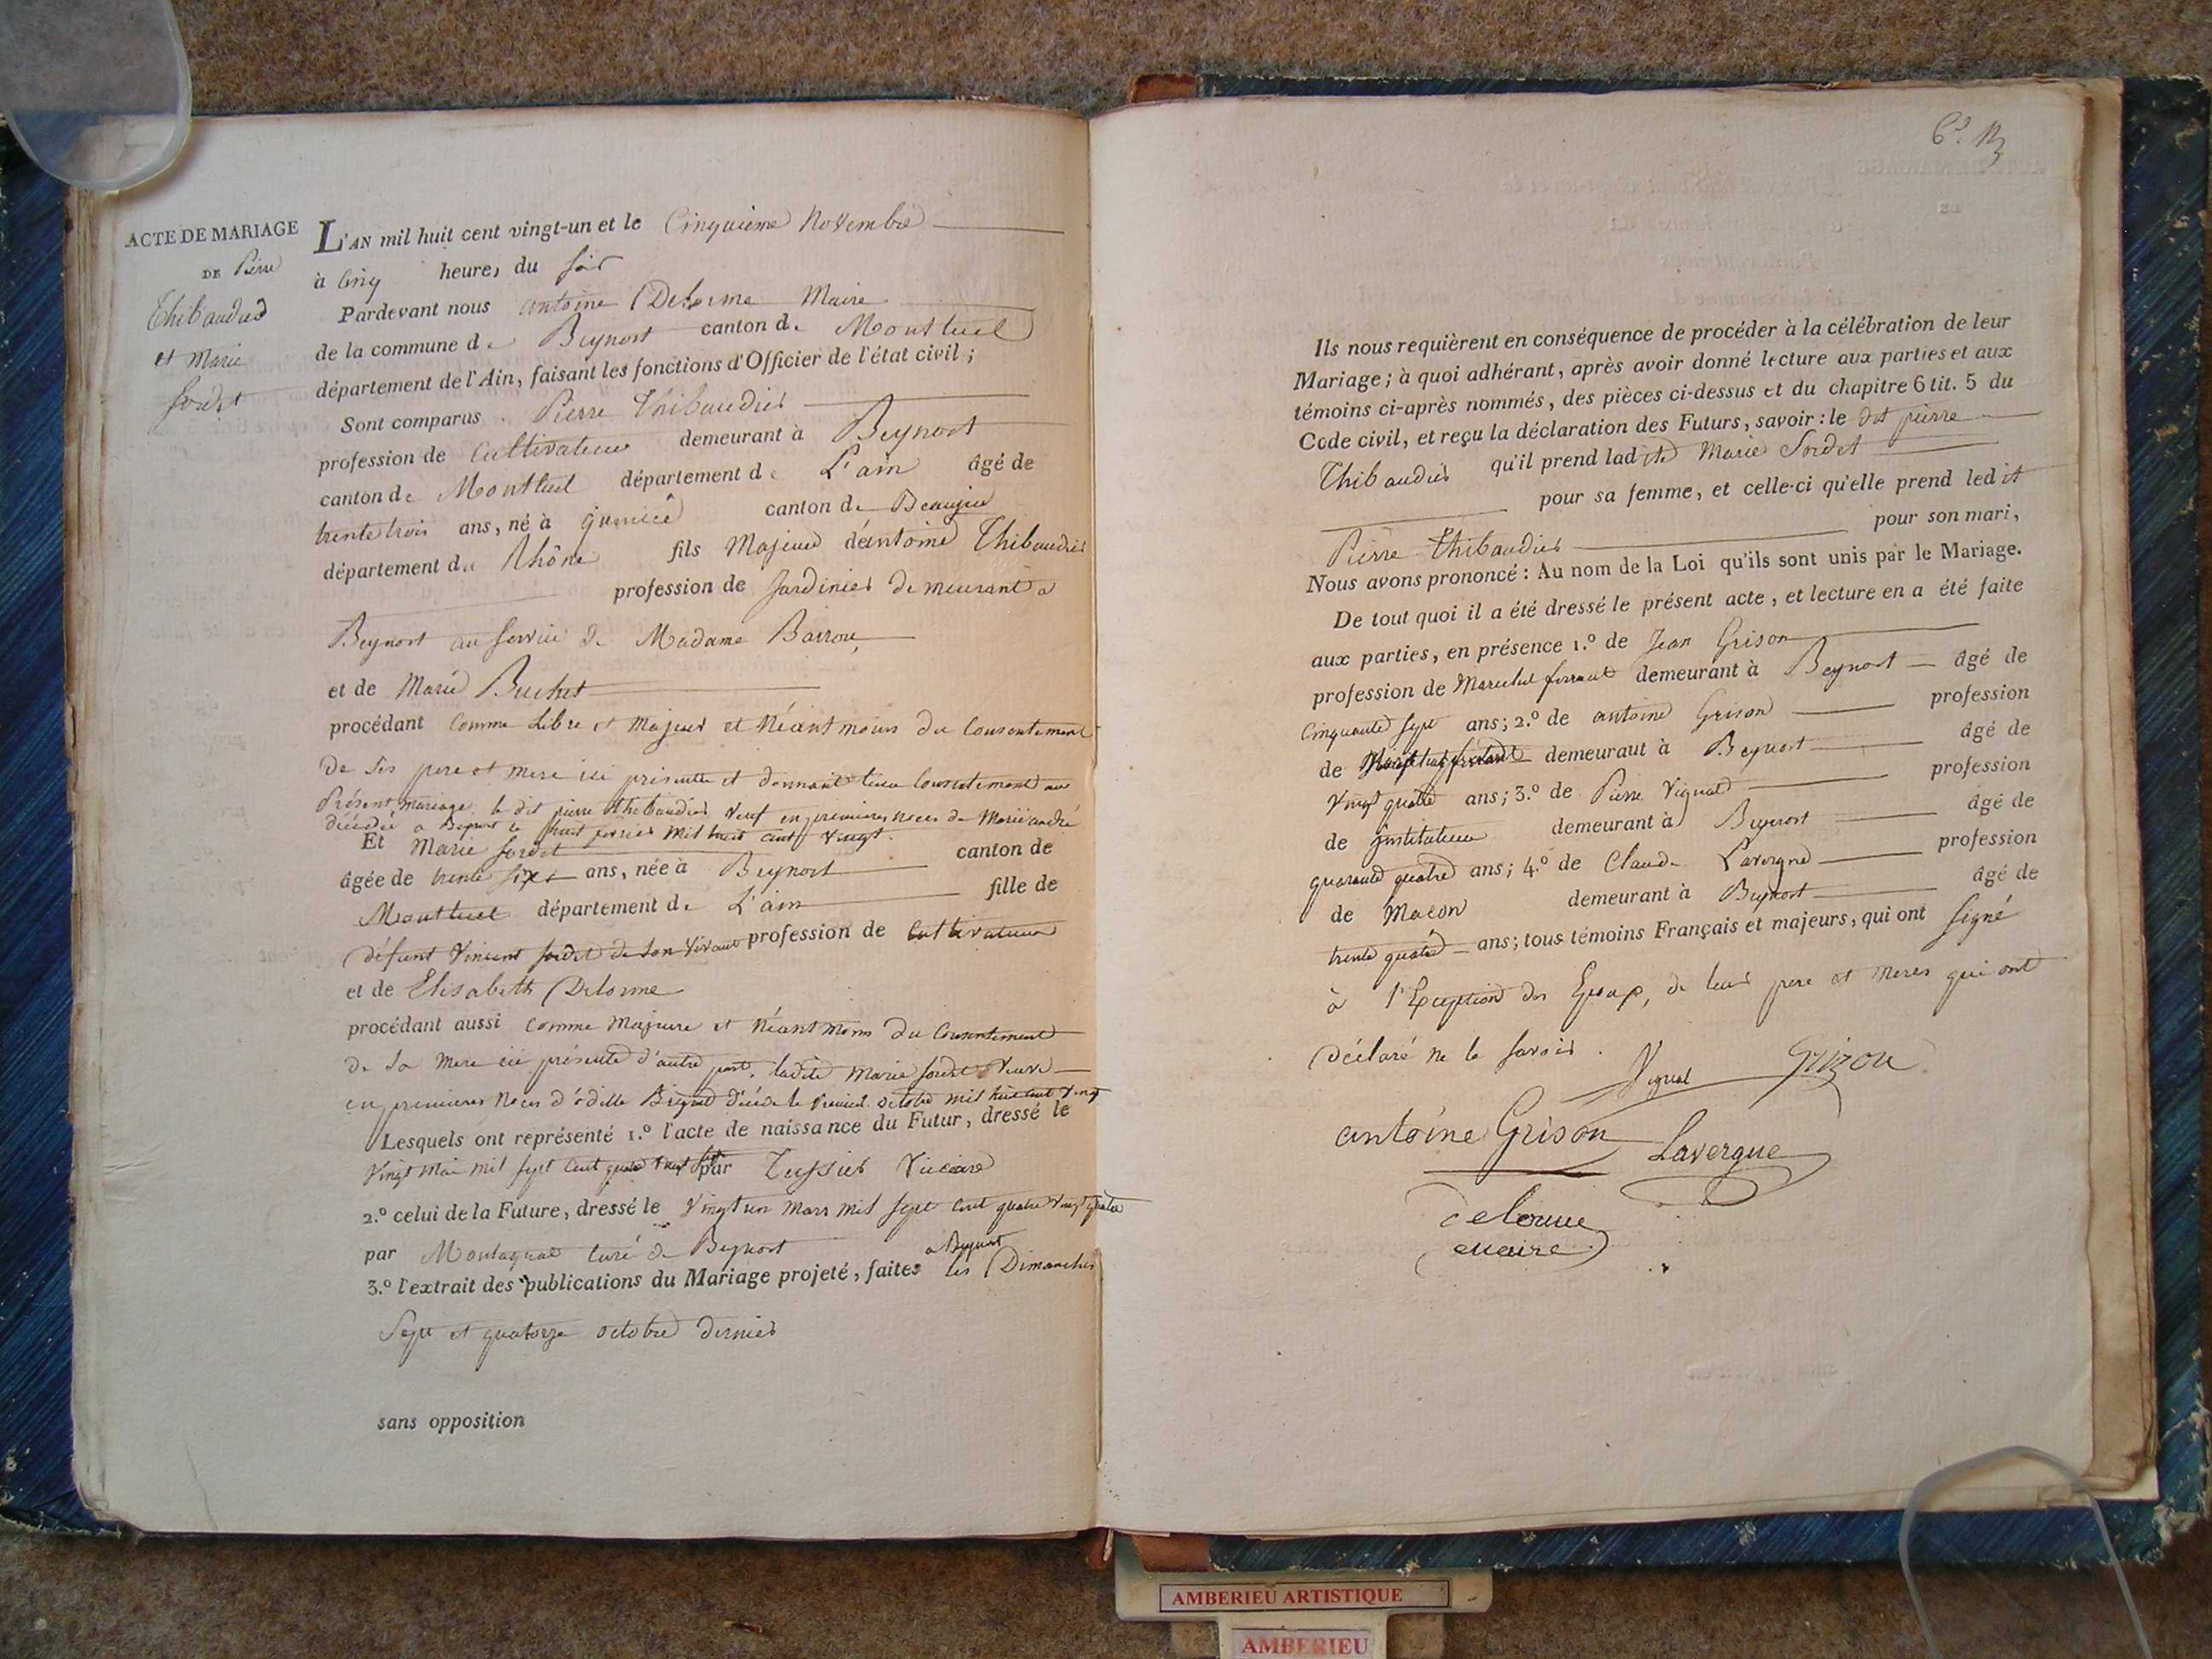 ACTE DE MARIAGE
DE Pierre
Thibaudier
et Marie
Sordet
L'AN mil huit cent vingt-un et le Cinquieme Novembre
à Cinq heures du soir
Pardevant nous antoine Delorme Maire
de la commune de Beynost canton de Montluel
département de l'Ain, faisant les fonctions d'Officier de l'état civil;
Sont comparus Pierre Thibaudier
profession de Cultivateur demeurant à Beynost
canton de Montluel département de L'ain âgé de
trente trois ans, né à canton de Beaujeu
département du Rhône fils Majeur d'antoine Thibaudier
profession de Jardinier demeurant a
Beynost au service de Madame Barrou,
et de Marie Buchet
procédant Comme Libre et Majeur et Néantmoins du Consentement
De Ses pere et mere ici présents et donnant leur Consentement au
Présent mariage le dit pierre thibaudier Veuf en premieres noces de Marie andré
décédée a Beynost le huit janvier mil huit cent vingt.
Et Marie Sordet
âgée de trente six ans, née à Beynost canton de
Montluel département de L'ain fille de
Défunt Vincent Sordet de Son Vivant profession de Cultivateur
et de Elisabeth Delorme
procédant aussi Comme Majeure et Néantmoins du Consentement
de Sa Mere ici présente d'autre part, ladite Marie Sordet Veuve
en premieres Noces d' décédé le premier octobre mil huit cent vingt
Lesquels ont représenté 1.º l'acte de naissance du Futur, dressé le
Vingt Mai mil sept Cent quatre vingt par Vicaire
2.º celui de la Future, dressé le Vingt un Mars mil sept Cent quatre vingt quatre
par Montagnat Curé de Beynost
3.º l'extrait des publications du Mariage projeté, faites a Beynost les Dimanches
Sept et quatorze octobre Dernier
sans opposition
Ils nous requièrent en conséquence de procéder à la célébration de leur
Mariage; à quoi adhérant, après avoir donné lecture aux parties et aux
témoins ci-après nommés, des pièces ci-dessus et du chapitre 6 tit. 5 du
Code civil, et reçu la déclaration des Futurs, savoir: le dit pierre
Thibaudier qu'il prend ladite Marie Sordet
pour sa femme, et celle-ci qu'elle prend ledit
Pierre Thibaudier pour son mari,
Nous avons prononcé: Au nom de la Loi qu'ils sont unis par le Mariage.
De tout quoi il a été dressé le présent acte, et lecture en a été faite
aux parties, en présence 1.º de Jean Grison
profession de Marechal ferrant demeurant à Beynost âgé de
Cinquante sept ans; 2.º de antoine Grison profession
de demeuraut à Beynost âgé de
Vingt quatre ans; 3.º de Pierre Vignat profession
de Instituteur demeurant à Beynost âgé de
quarante quatre ans; 4.º de Claude Lavergne profession
de Macon demeurant à Beynost âgé de
trente quatre ans; tous témoins Français et majeurs, qui ont Signé
à l'Exception des Epoux, de leurs pere et Meres qui ont
Déclaré ne le Savoir.
Vignat Grizon
antoine Grison Lavergne
delorme
maire
AMBERIEU ARTISTIQUE
AMBERIEU